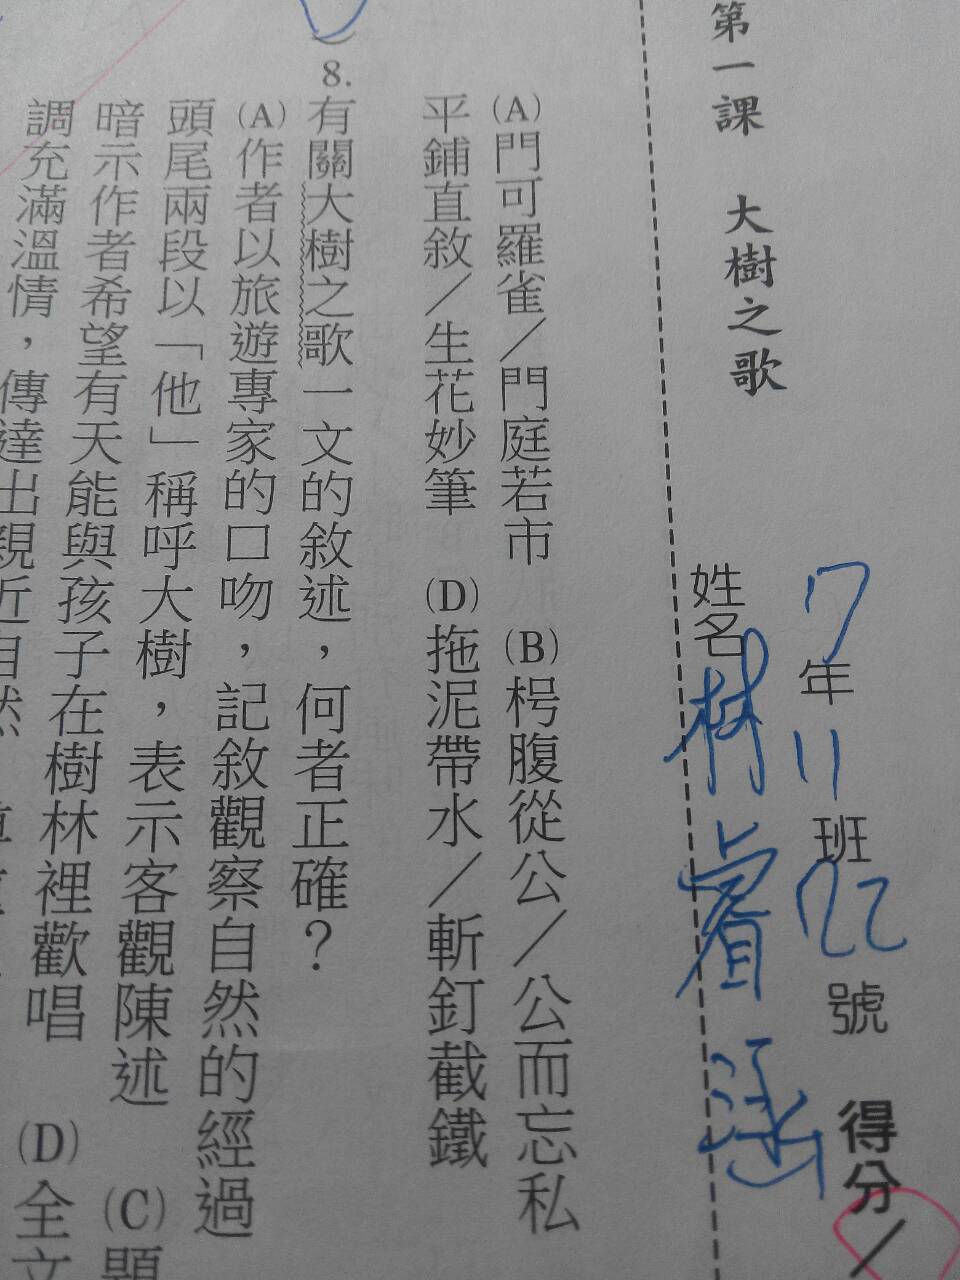 第一課 大樹之歌
7年11班22號 得分
姓名林睿涵
(A)門可羅雀／門庭若市 (B)枵腹從公／公而忘私
平鋪直敘／生花妙筆 (D)拖泥帶水／斬釘截鐵
8.有關大樹之歌一文的敘述，何者正確？
(A)作者以旅遊專家的口吻，記敘觀察自然的經過
頭尾兩段以「他」稱呼大樹，表示客觀陳述 (C)題
暗示作者希望有天能與孩子在樹林裡歡唱 (D)全文
調充滿溫情，傳達出親近自然